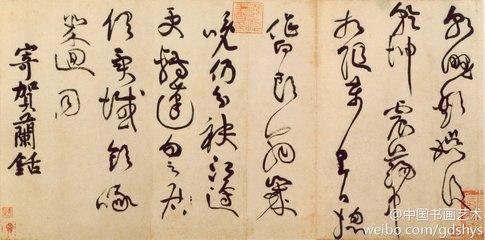 朝野歡娛後
乾坤震蕩中
相隨萬里日總
作白頭翁歲
晚仍分袂江邊
更轉蓬勿云
俱異域飲啄
幾迴同
寄賀蘭銛
@中国书画艺术
weibo.com/gdshys